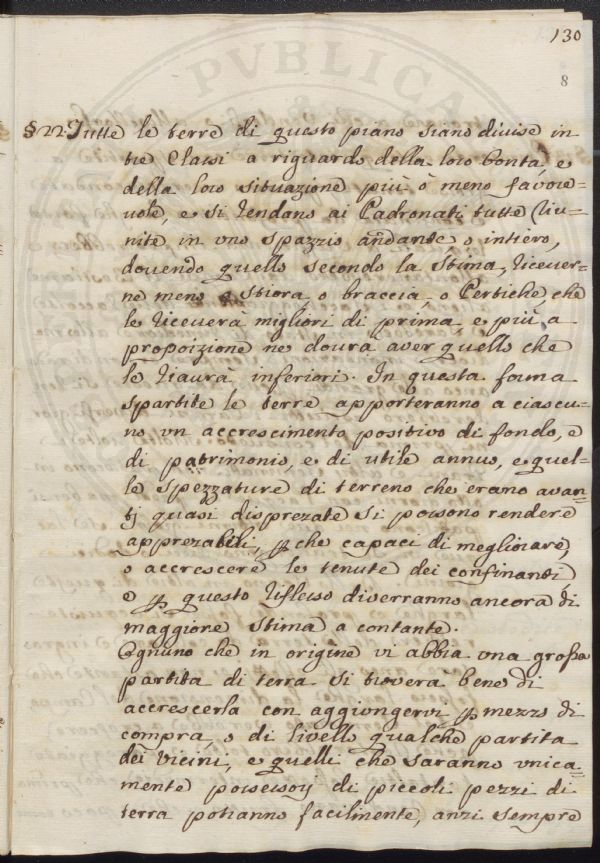 130
8
§ 22. Tutte le terre di questo piano siano divise in
tre Classi a riguardo della loro bontà e
della loro situazione più ò meno favore=
uole, e si rendano ai Padronati tutte riu=
nite in vno spazzio andante o intiero,
douendo quello secondo la stima, riceuer=
ne meno stiora, o braccia, o Pertiche che
le riceuerà migliori di prima, e più a
proporzione ne dourà aver quello che
le riaurà inferiori. In questa forma
spartite le terre apporteranno a ciascu=
no vn accrescimento positivo di fondo, e
di patrimonio, e di utile annuo, e quel=
le spezzature di terreno che erano avan=
tj quasi disprezate si possono rendere
apprezabili, p che capaci di megliorare,
o accrescere le tenute dei confinanti
e p questo riflesso diverranno ancora di
maggiore stima a contante.
Ognuno che in origine vi abbia vna grossa
partita di terra si troverà bene di
accrescerla con aggiongervi p mezzo di
compra, o di livello qualche partita
dei vicini, e quelli che saranno vnica=
mente possessorj di piccoli pezzi di
terra potranno facilmente, anzi sempre
PVBLICA